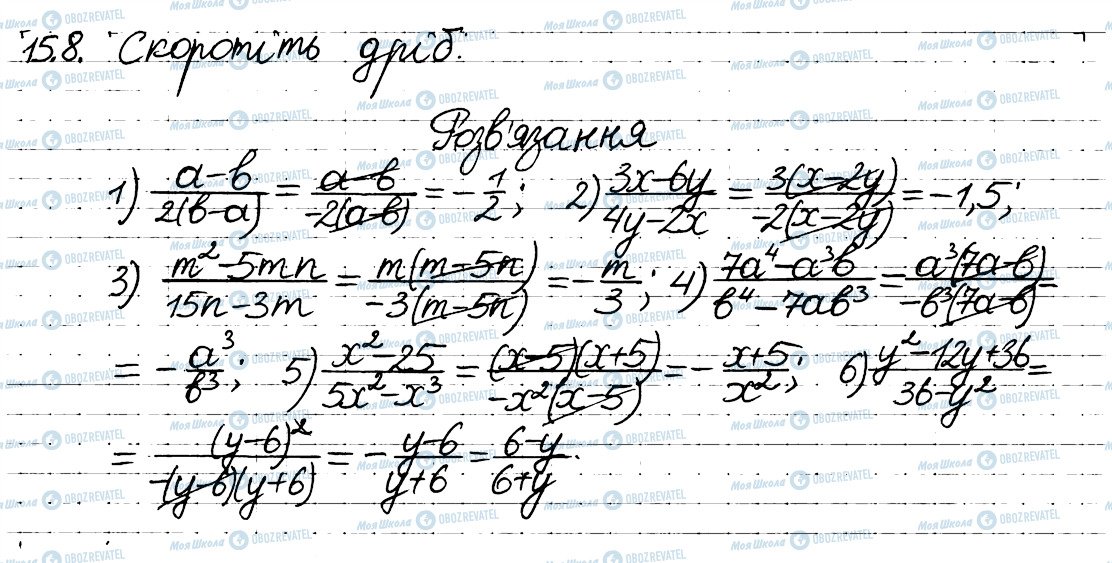 15.8. Скоротіть дріб.
Розв'язання
1) (a-b)/(2(b-a)) = (a-b)/(-2(a-b)) = -1/2; 2) (3x-6y)/(4y-2x) = (3(x-2y))/(-2(x-2y)) = -1,5;
3) (m²-5mn)/(15n-3m) = (m(m-5n))/(-3(m-5n)) = -m/3; 4) (7a⁴-a³b)/(b⁴-7ab³) = (a³(7a-b))/(-b³(7a-b)) =
= -a³/b³; 5) (x²-25)/(5x²-x³) = ((x-5)(x+5))/(-x²(x-5)) = -(x+5)/x²; 6) (y²-12y+36)/(36-y²) =
= (y-6)²/(-(y-6)(y+6)) = -(y-6)/(y+6) = (6-y)/(6+y).
Моя Школа OBOZREVATEL